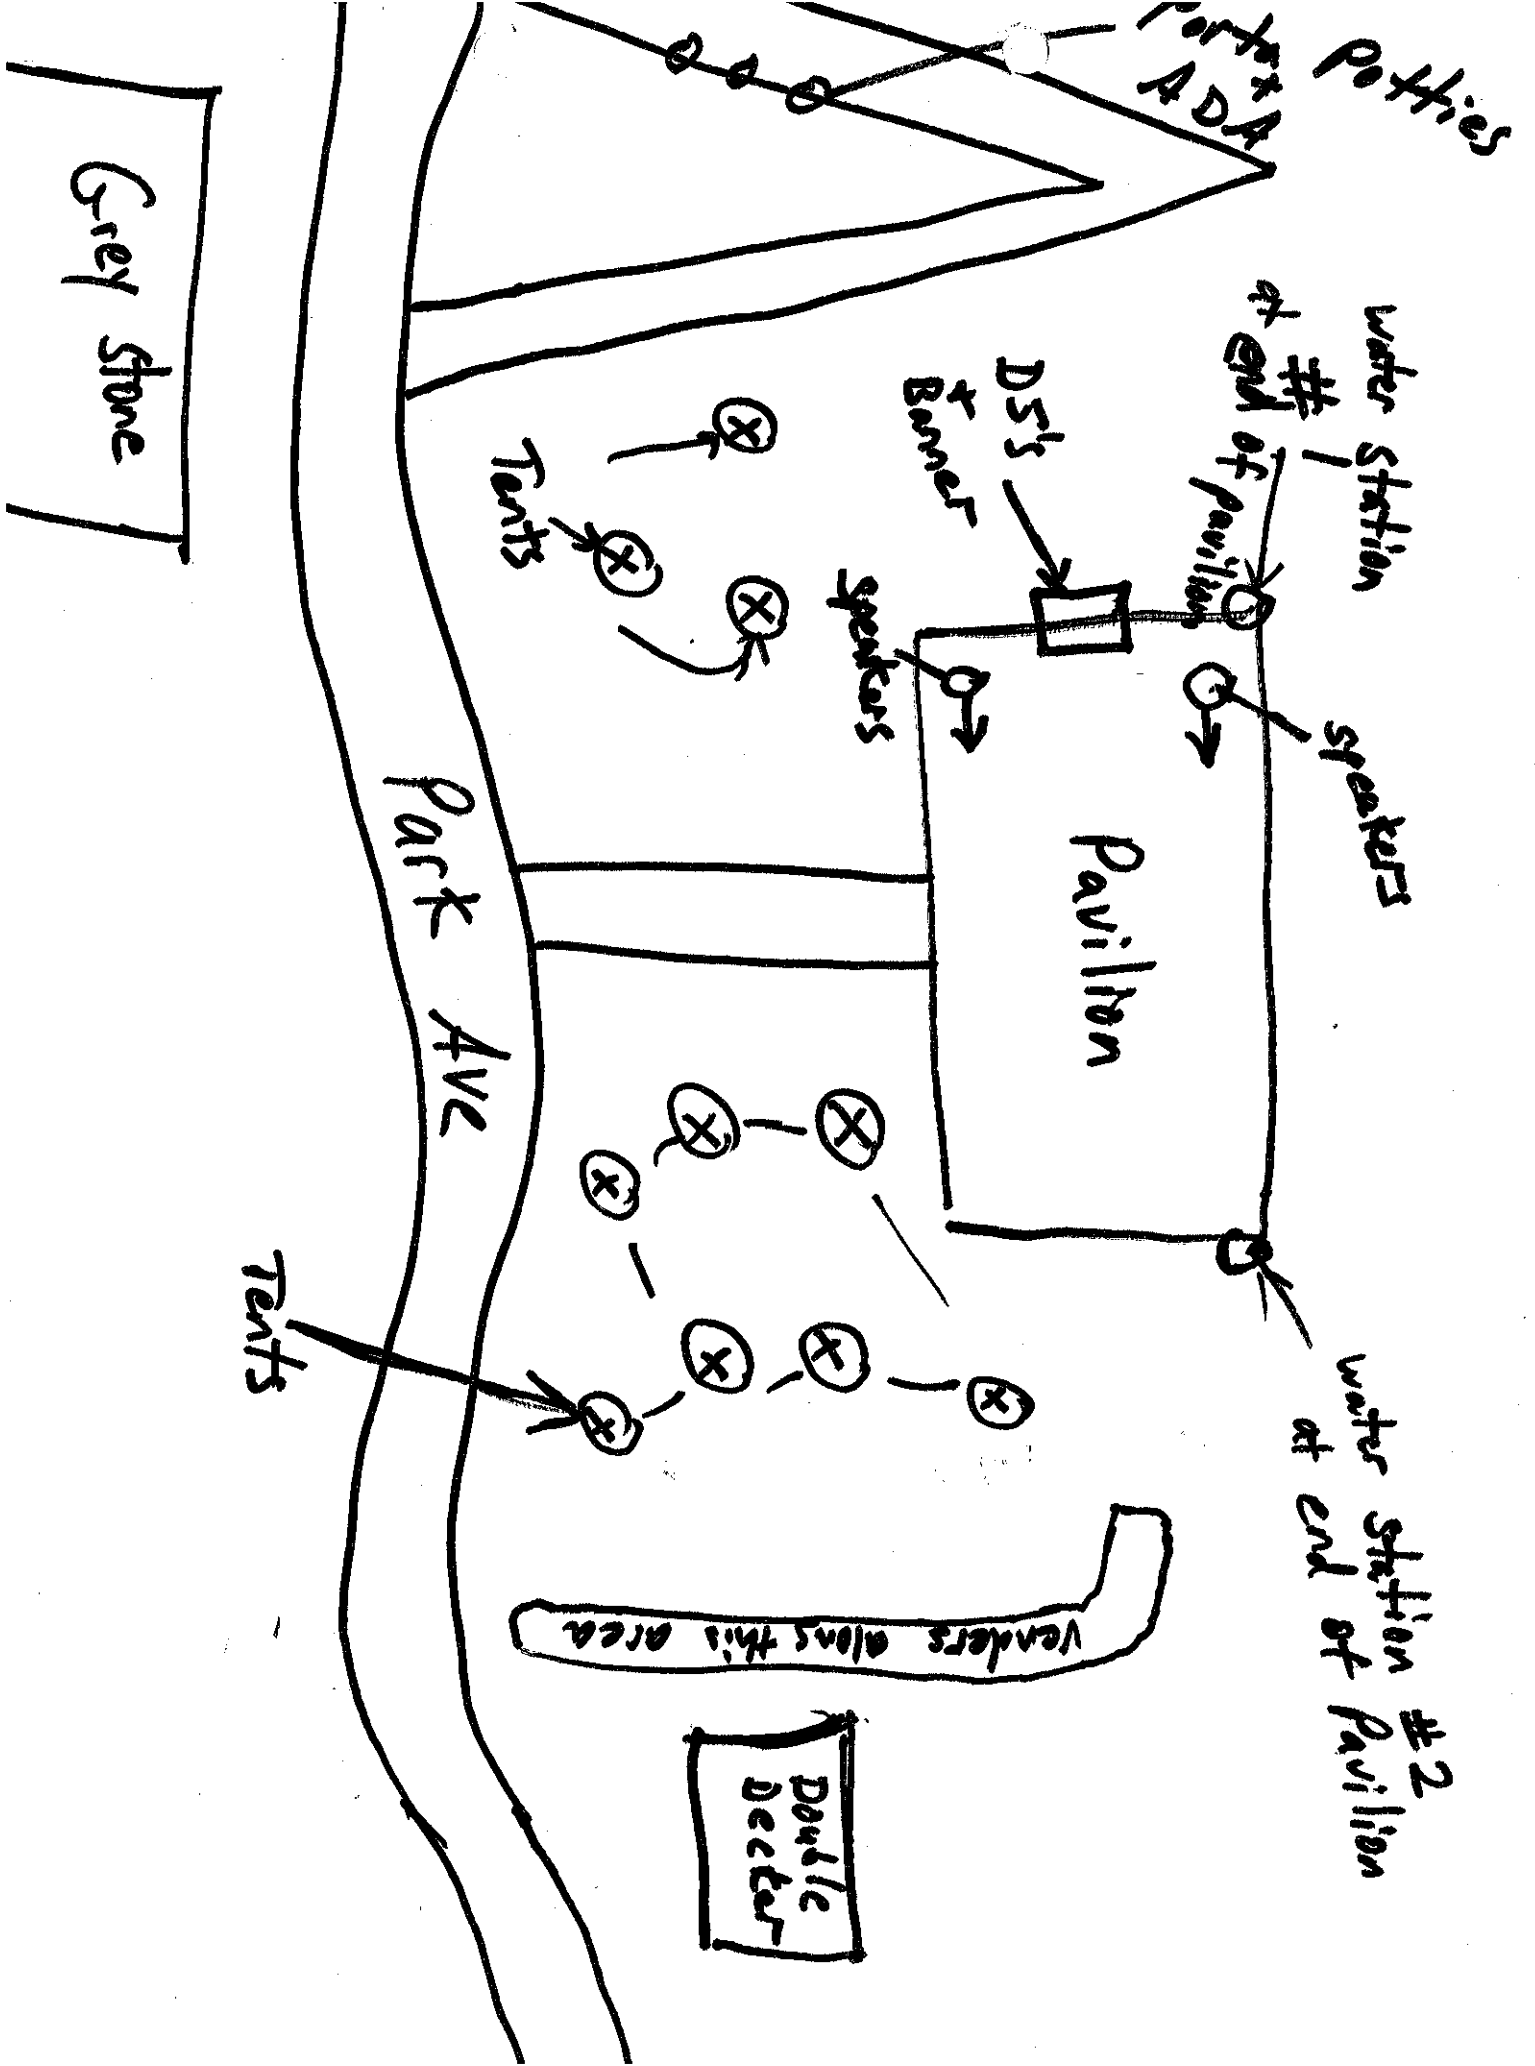 Porta Potties
+ ADA
Water Station
# 1
at end of Pavilion
DJ's
+
Banner
Speakers
Speakers
Tents
Pavilion
Grey Stone
Park Ave
Tents
Water Station #2
at end of Pavilion
Venders along this area
Double
Decker